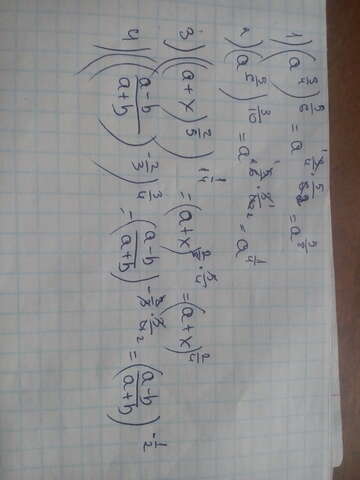 1) (a^{3/4})^{5/6} = a^{3/4 · 5/6} = a^{5/8}
2) (a^{5/6})^{3/10} = a^{5/6 · 3/10} = a^{1/4}
3) ((a+x)^{2/5})^{1 1/4} = (a+x)^{2/5 · 5/4} = (a+x)^{2/4}
4) ((a-b/a+b)^{-2/3})^{3/4} = (a-b/a+b)^{-2/3 · 3/4} = (a-b/a+b)^{-1/2}